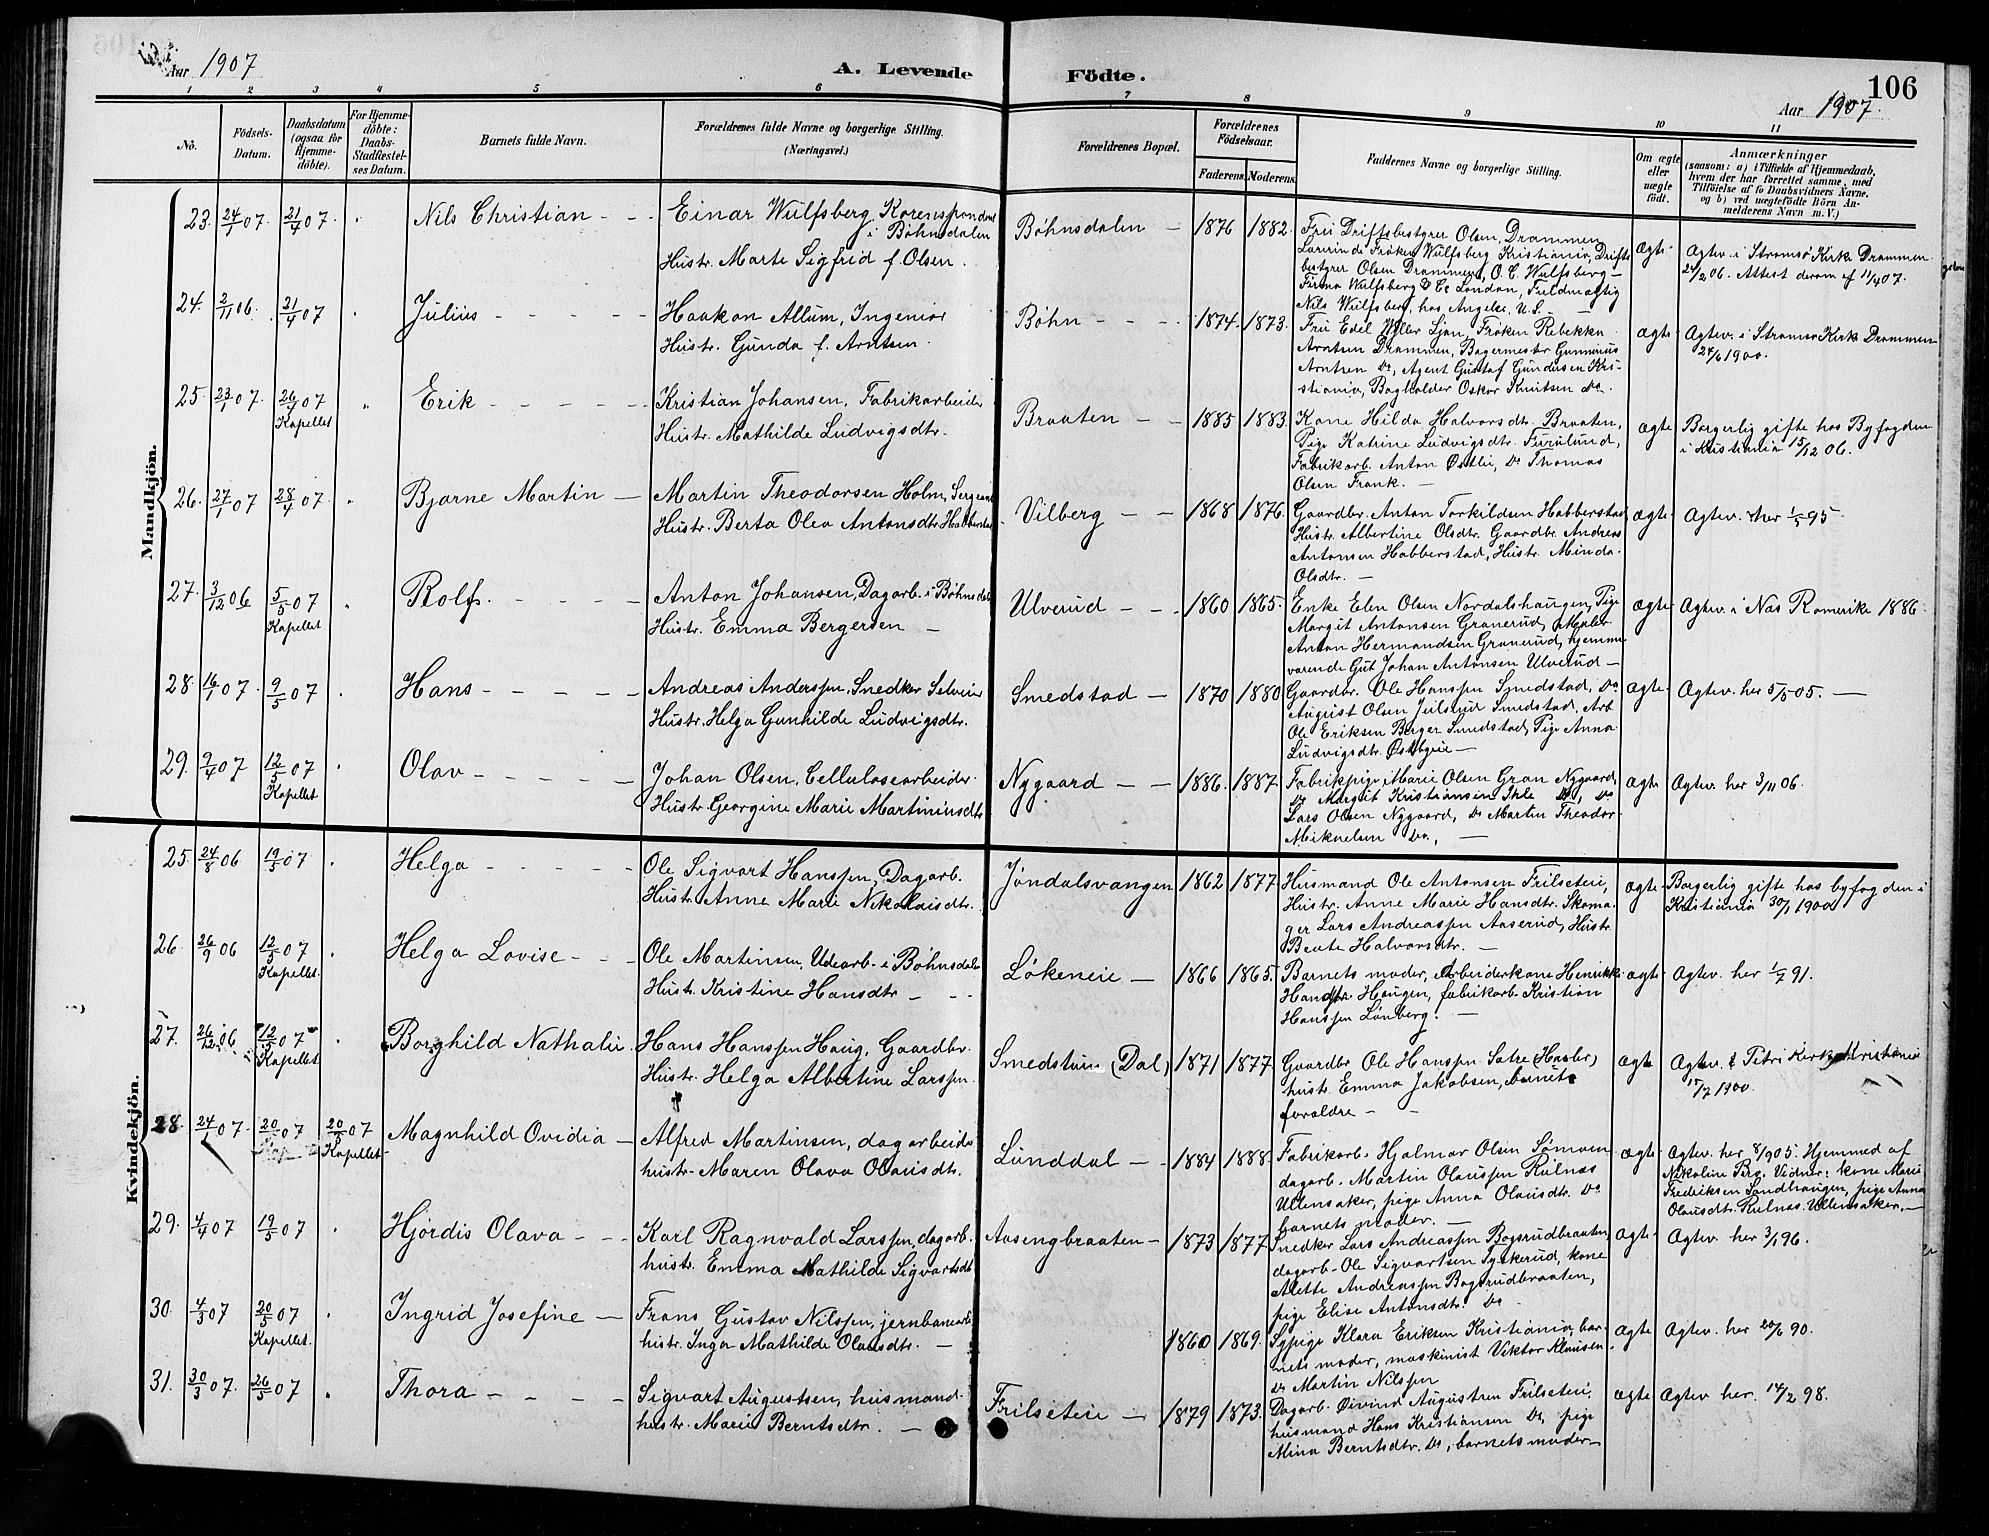 Aar 1907
A. Levende Födte.
106
Aar 1907.
1 2 3 4 5 6 7 8 9 10 11
No.
Födsels-Datum.
Daabsdatum (ogsaa for Hjemme-döbte).
For Hjemme-döbte: Daabs-Stadfæstel-ses Datum.
Barnets fulde Navn.
Forældrenes fulde Navne og borgerlige Stilling. (Næringsvei.)
Forældrenes Bopæl.
Forældrenes Födselsaar.
Faderens. Moderens.
Faddernes Navne og borgerlige Stilling.
Om ægte eller uægte födt.
Anmærkninger
(saasom: a) i Tilfælde af Hjemmedaab, hvem der har forrettet samme, med Tilföielse af to Daabsvidners Navne, og b) ved uægtefödte Börn An-melderens Navn m. V.)
Mandkjön.
23. 24/1 07 21/4 07 Nils Christian
Einar Wulfsberg, Korrespondent i Bøhnsdalen
Hustr. Marte Sigfrid f. Olsen.
Bøhnsdalen 1876 1882.
Fru Driftsbestyrer Olsen, Drammen
Frøken Wulfsberg Kristiania, Drifts
bestyrer Olsen Drammen, O. C. Wulfsberg
Firma Wulfsberg & Co London,
Nils Wulfsberg, Los Angeles, U.S.
ægte
Ægtev. i Strømsø Kirke Drammen
24/2 06. Attest derom af 11/4 07.
24. 2/11 06. 21/4 07 Julius
Haakon Allum, Ingeniør
Hustr. Gunda f. Arntsen.
Bøhn 1874. 1873.
Fru Edel Ljan, Frøken Rebekka
Arntsen Drammen, Bagermester Gunnerius
Arntsen Do, Agent Gustaf Gundersen Kri-
stiania, Bogholder Oskar Knutsen Do.
ægte
Ægtev. i Strømsø Kirke Drammen
24/6 1900.
25. 23/1 07. 26/4 07 Kapellet Erik
Kristian Johansen, Fabrikarbeider
Hustr. Mathilde Ludvigsdtr.
Braaten 1885 1883.
Kone Hilda Halvorsdtr. Braaten,
Pige Katrine Ludvigsdtr. Furulund,
Fabrikarb. Anton Østlie, Do Thomas
Olsen Frank.
ægte
Borgerlig gifte hos Byfogden
i Kristiania 15/12 06.
26. 27/1 07 28/4 07. Bjarne Martin
Martin Theodorsen Holm, Sergeant
Hustr. Berta Olea Antonsdtr. Habberstad
Vilberg 1868 1876.
Gaardbr. Anton Torkildsen Habberstad,
Hustr. Albertine Olsdtr. Gaardbr. Andreas
Antonsen Habberstad, Hustr. Minda
Olsdtr.
ægte
Ægtev. her 1/5 95.
27. 3/12 06 5/5 07 Kapellet Rolf.
Anton Johansen, Dagarb. i Bøhnsdal
Hustr. Emma Bergersen
Ulverud 1860 1865.
Enke Elen Olsen Nordalshaugen, Pige
Margit Antonsen Granerud, Maler
Anton Hermandsen Granerud, hjemme-
værende Gut Johan Antonsen Ulverud
ægte
Ægtev. i Næs Romerike 1886.
28. 16/1 07. 9/5 07. Hans
Andreas Anderssen, Snedker Selveier
Hustr. Helga Gunhilde Ludvigsdtr.
Smedstad 1870 1880
Gaardbr. Ole Hanssen Smedstad, Do
August Olsen Julsrud Smedstad, Arb
Ole Eriksen Berger Smedstad, Pige Anna
Ludvigsdtr. Østbyeie
ægte
Ægtev. her 5/5 05.
29. 9/4 07 12/5 07 Kapellet Olav
Johan Olsen, Cellulosearbeider.
Hustr. Georgine Marie Martiniusdtr
Nygaard 1886. 1887.
Fabrikpige Marie Olsen Gran Nygaard,
Do Margit Kristiansen Ihle Do, Do
Lars Olsen Nygaard, Do Martin Theodor
Mikaelsen Do.
ægte
Ægtev. her 3/11 06.
Kvindekjön.
25. 24/8 06 19/5 07 Helga
Ole Sigvart Hanssen, Dagarb.
Hustr. Anne Marie Nikolaisdtr.
Jøndalsvangen 1862 1877
Husmand Ole Antonsen Frilseteie,
Hustr. Anne Marie Hansdtr. Skoma-
ger Lars Andreassen Aaserud, Hustr.
Beate Halvorsdtr.
ægte
Borgerlig gifte hos byfogden i
Kristiania 30/1 1900
26. 26/9 06 12/5 07 Kapellet. Helga Lovise
Ole Martinsen, Udearb. i Bøhnsdalen
Hustr. Kristine Hansdtr
Løkeneie 1866 1865.
Barnets moder, Arbeiderkone Henrikke
Hansdtr Haugen, fabrikarb. Kristian
Hanssen Lønberg.
ægte
Ægtev. her 1/7 91.
27. 26/12 06 12/5 07 Kapellet Borghild Nathalie
Hans Hanssen Haug, Gaardbr.
Hustr. Helga Albertine Larssen.
Smedstuen (Dal) 1871 1877
Gaardbr Ole Hanssen Sætre
hustr. Emma Jakobsen, barnets
forældre
ægte
Ægtev. i Petri Kirke, Kristiania
17/7 1900.
28. 24/1 07. 20/5 07 20/5 07 Kapellet Magnhild Ovidia
Alfred Martinsen, dagarbeider
hustr. Maren Olava Olausdtr.
Lunddal 1884 1888.
Fabrikarb. Hjalmar Olsen Sømoen
dagarb. Martin Olaussen Rulnæs
Ullensaker, pige Anna Olausdtr. Do
barnets moder.
ægte
Ægtev. her 8/9 05. Hjemmed. af
Nikoline Vidner: kone Marie
Fredriksen Sandhaugen, pige Anna
Olausdtr. Rulnæs. Ullensaker.
29. 4/4 07 19/5 07 Hjørdis Olava
Karl Ragnvald Larssen, dagarb.
hustr. Emma Mathilde Sigvartsdtr
Aasengbraaten 1873 1877
Snedker Lars Andreassen Bogsrudbraaten
dagarb. Ole Sigvartsen Tyskerud, kone
Alette Andreassen Bogsrudbraaten,
pige Elise Antonsdtr. Do
ægte
Ægtev. her 3/1 96.
30. 4/3 07 20/5 07 Kapellet. Ingrid Josefine
Frans Gustav Nilssen, jernbanearb
hustr. Inga Mathilde Olausdtr.
1860 1869.
Sypige Klara Eriksen Kristiania, bar-
nets moder, maskinist Viktor Klausen,
Do Martin Nilssen
ægte
Ægtev. her 20/6 90.
31. 30/3 07. 26/5 07 Thora
Sigvart Augustsen, husmand.
hustr. Marie Berntsdtr.
Frilseteie 1879 1873.
Dagarb. Øivind Augustsen Frilseteie,
husmand Hans Kristiansen Do, pige
Mina Berntsdtr. Do, barnets moder
ægte
Ægtev. her 14/2 98.